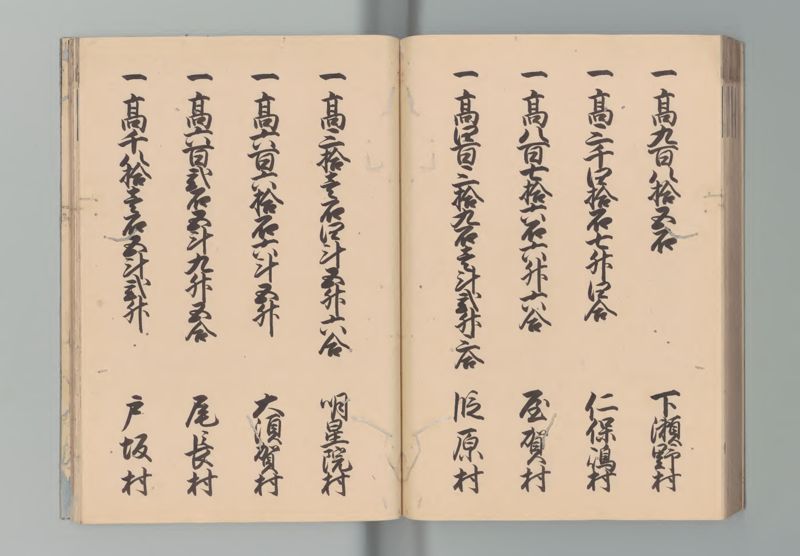 一 高九百八拾五石 下瀬野村
一 高二千四拾石七升四合 仁保嶋村
一 高八百七拾六石六升六合 屋賀村
一 高四百二拾九石壱斗弐升二合 原村
一 高二拾壱石四斗五升六合 明星院村
一 高六百六拾石六斗五升 大須賀村
一 高六百弐石五斗九升五合 尾長村
一 高千八拾壱石五斗弐升 戸坂村